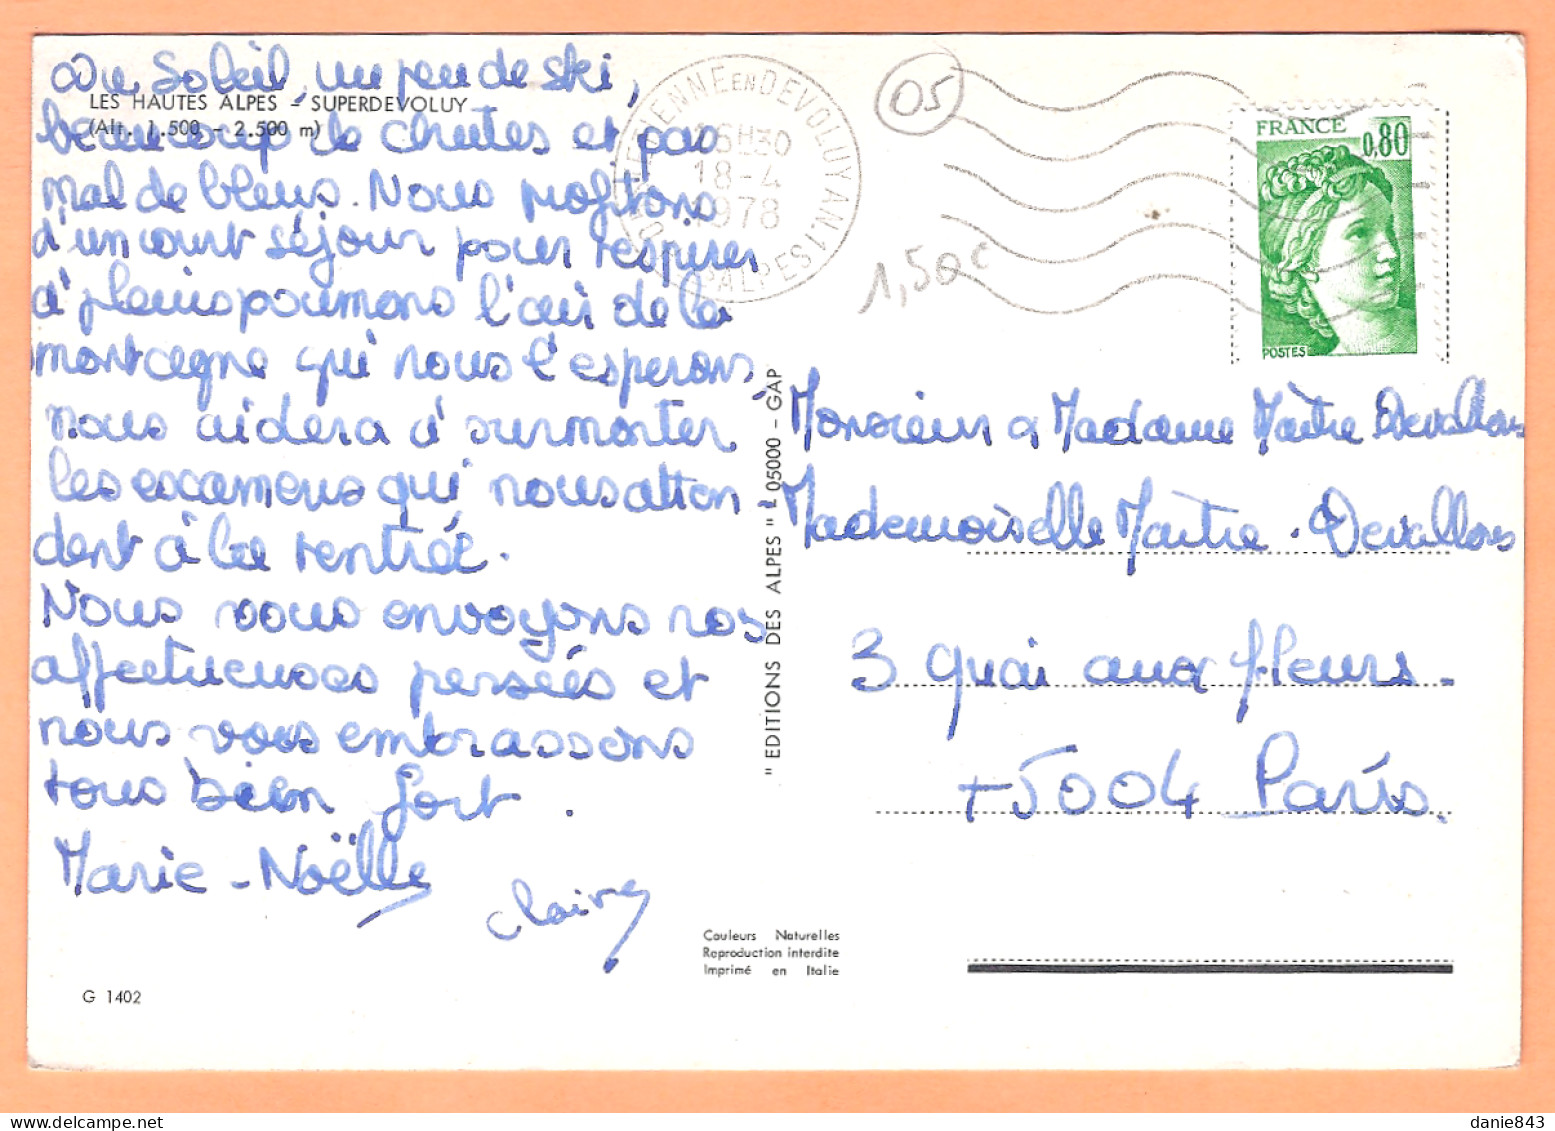 Du Soleil, un peu de ski,
LES HAUTES ALPES - SUPERDEVOLUY
(Alt. 1.500 - 2.500 m)
beaucoup de chutes et pas
mal de bleus. Nous profitons
d'un court séjour pour respirer
à pleins poumons l'air de la
montagne qui nous l'esperons,
nous aidera à surmonter
les examens qui nous atten
dent à la rentrée.
Nous vous envoyons nos
affectueuses pensées et
nous vous embrassons
tous bien fort.
Marie-Noëlle
Claire
G 1402
Couleurs Naturelles
Reproduction interdite
Imprimé en Italie
" EDITIONS DES ALPES " - 05000 - GAP
ETIENNE EN DEVOLUY AN.1
16H30
18-4
1978
ALPES
05
1,50€
FRANCE
0,80
POSTES
Monsieur & Madame Maître Devallons
Mademoiselle Maitre-Devallons
3 quai aux fleurs.
75004 Paris.
danie843